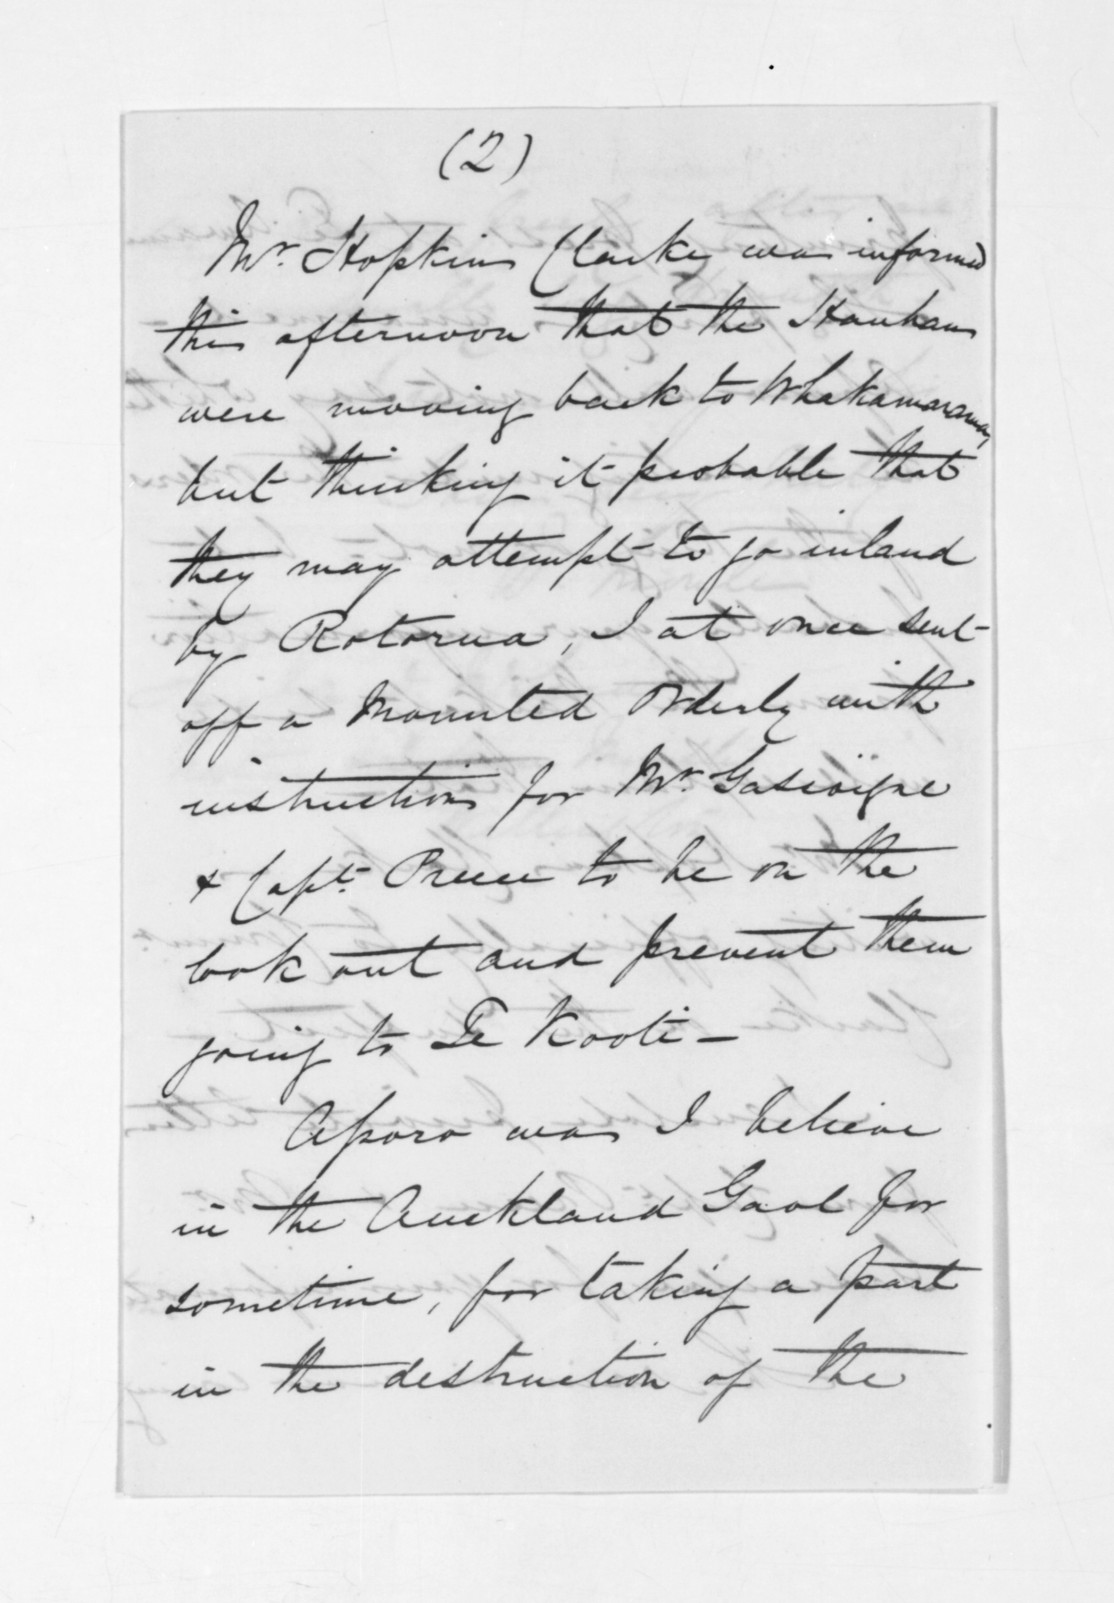 (2)
Mr. Hopkins Clarke was informed
this afternoon that the Hauhaus
were moving back to Whakamarama,
but thinking it probable that
they may attempt to go inland
by Rotorua, I at once sent
off a Mounted Orderly with
instructions for Mr. Gascoigne
& Capt. Preece to be on the
look out and prevent them
going to Te Kooti -
Aporo was I believe
in the Auckland Gaol for
sometime, for taking a part
in the destruction of the